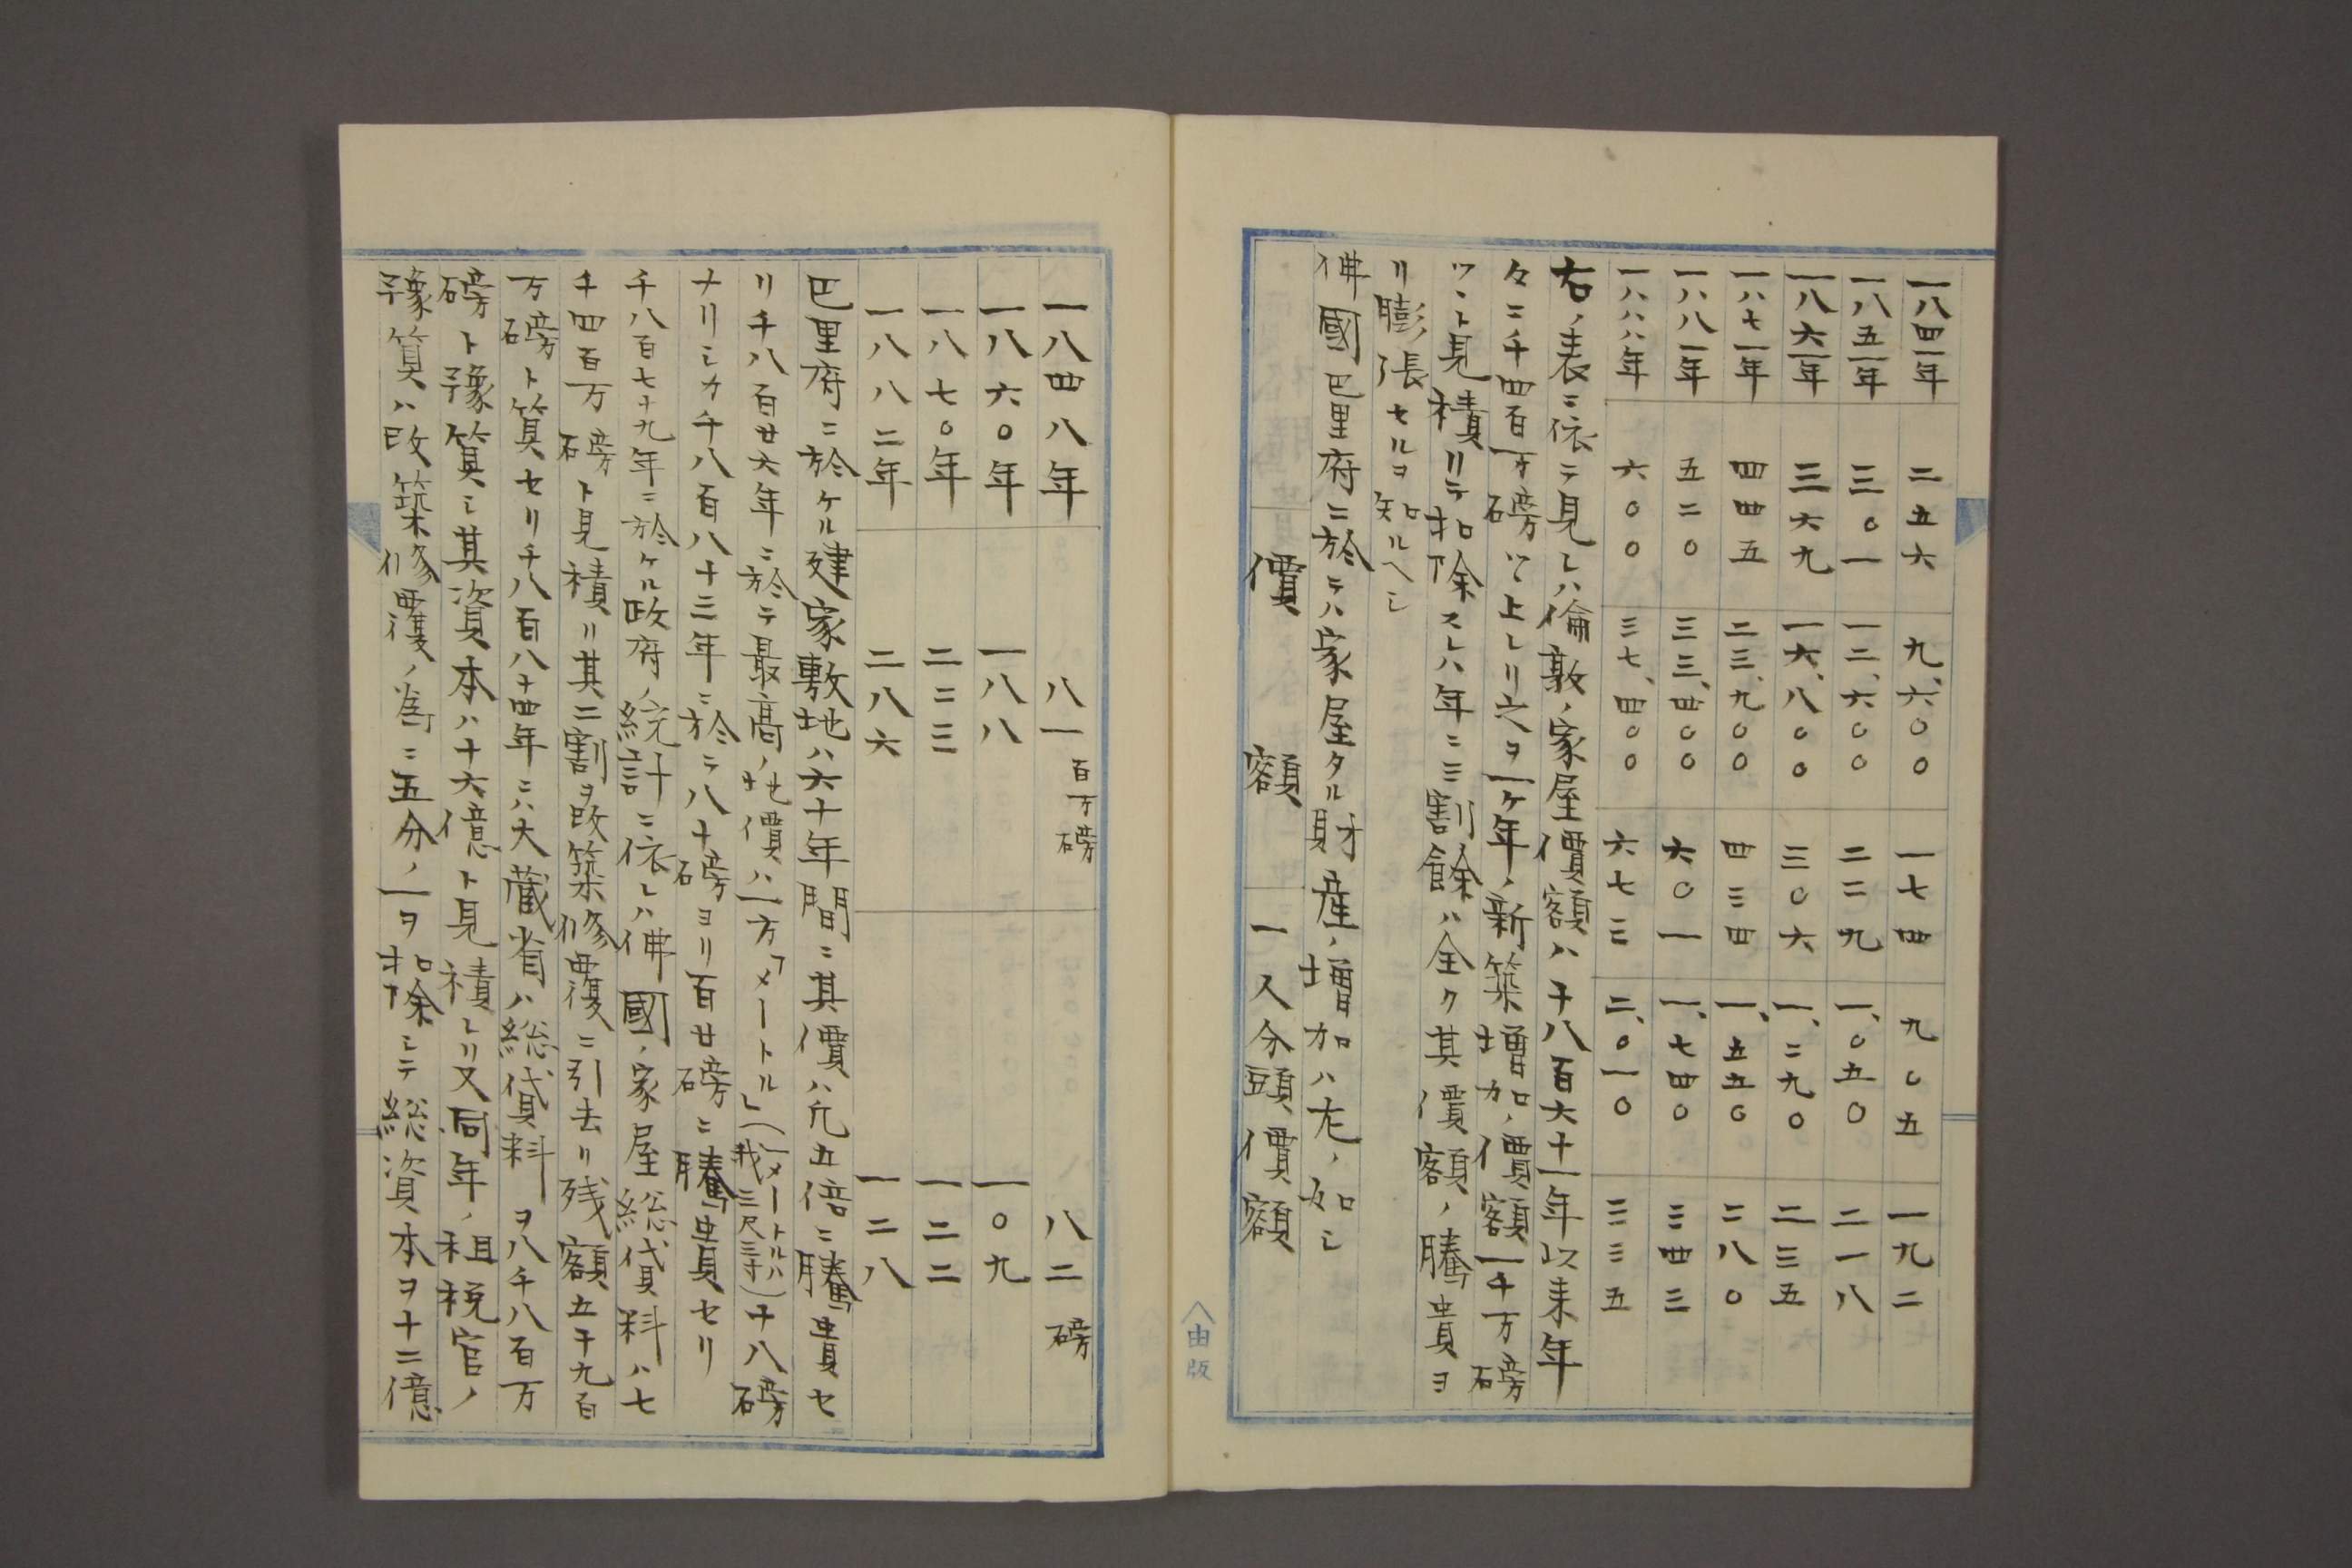 一八四一年 二五六 九、六〇〇 一七四 九〇五 一九二
一八五一年 三〇一 一三、六〇〇 二二九 一、〇五〇 二一八
一八六一年 三六九 一六、八〇〇 三〇六 一、二九〇 二三五
一八七一年 四四五 二三、九〇〇 四三四 一、五五〇 二八〇
一八八一年 五二〇 三三、四〇〇 六〇一 一、七四〇 三四三
一八八八年 六〇〇 三七、四〇〇 六七三 二、〇一〇 三三五
右ノ表ニ依テ見レハ倫敦ノ家屋價額ハ千八百六十一年以来年
々ニ千四百万磅ツヽ上レリ之ヲ一ケ年ノ新築増加ノ價額一千万磅
ツヽト見積リテ扣除スレハ年ニ三割餘ハ全ク其價額ノ騰貴ヨ
リ膨張セルヲ知ルヘシ
佛國巴里府ニ於テハ家屋タル財産ノ増加ハ左ノ如シ
價額 一人分頭價額
一八四八年 八一百万磅 八二磅
一八六〇年 一八八 一〇九
一八七〇年 二二三 一二二
一八八二年 二八六 一二八
巴里府ニ於ケル建家敷地ハ六十年間ニ其價ハ凢五倍ニ騰貴セ
リ千八百廿六年ニ於テ最高ノ地價ハ一方「メートル」(一メートルハ我三尺三寸)十八磅
ナリシカ千八百八十三年ニ於テ八十磅ヨリ百廿磅ニ騰貴セリ
千八百七十九年ニ於ケル政府ノ統計ニ依レハ佛國ノ家屋総貸料ハ七
千四百万磅ト見積リ其二割ヲ改築修覆ニ引去リ残額五千九百
万磅ト算セリ千八百八十四年ニハ大蔵省ハ総貸料ヲ八千八百万
磅ト豫算シ其資本ハ十六億ト見積レリ又同年ノ租税官ノ
豫算ハ改築修覆ノ為ニ五分ノ一ヲ扣除シテ総資本ヲ十二億
由版